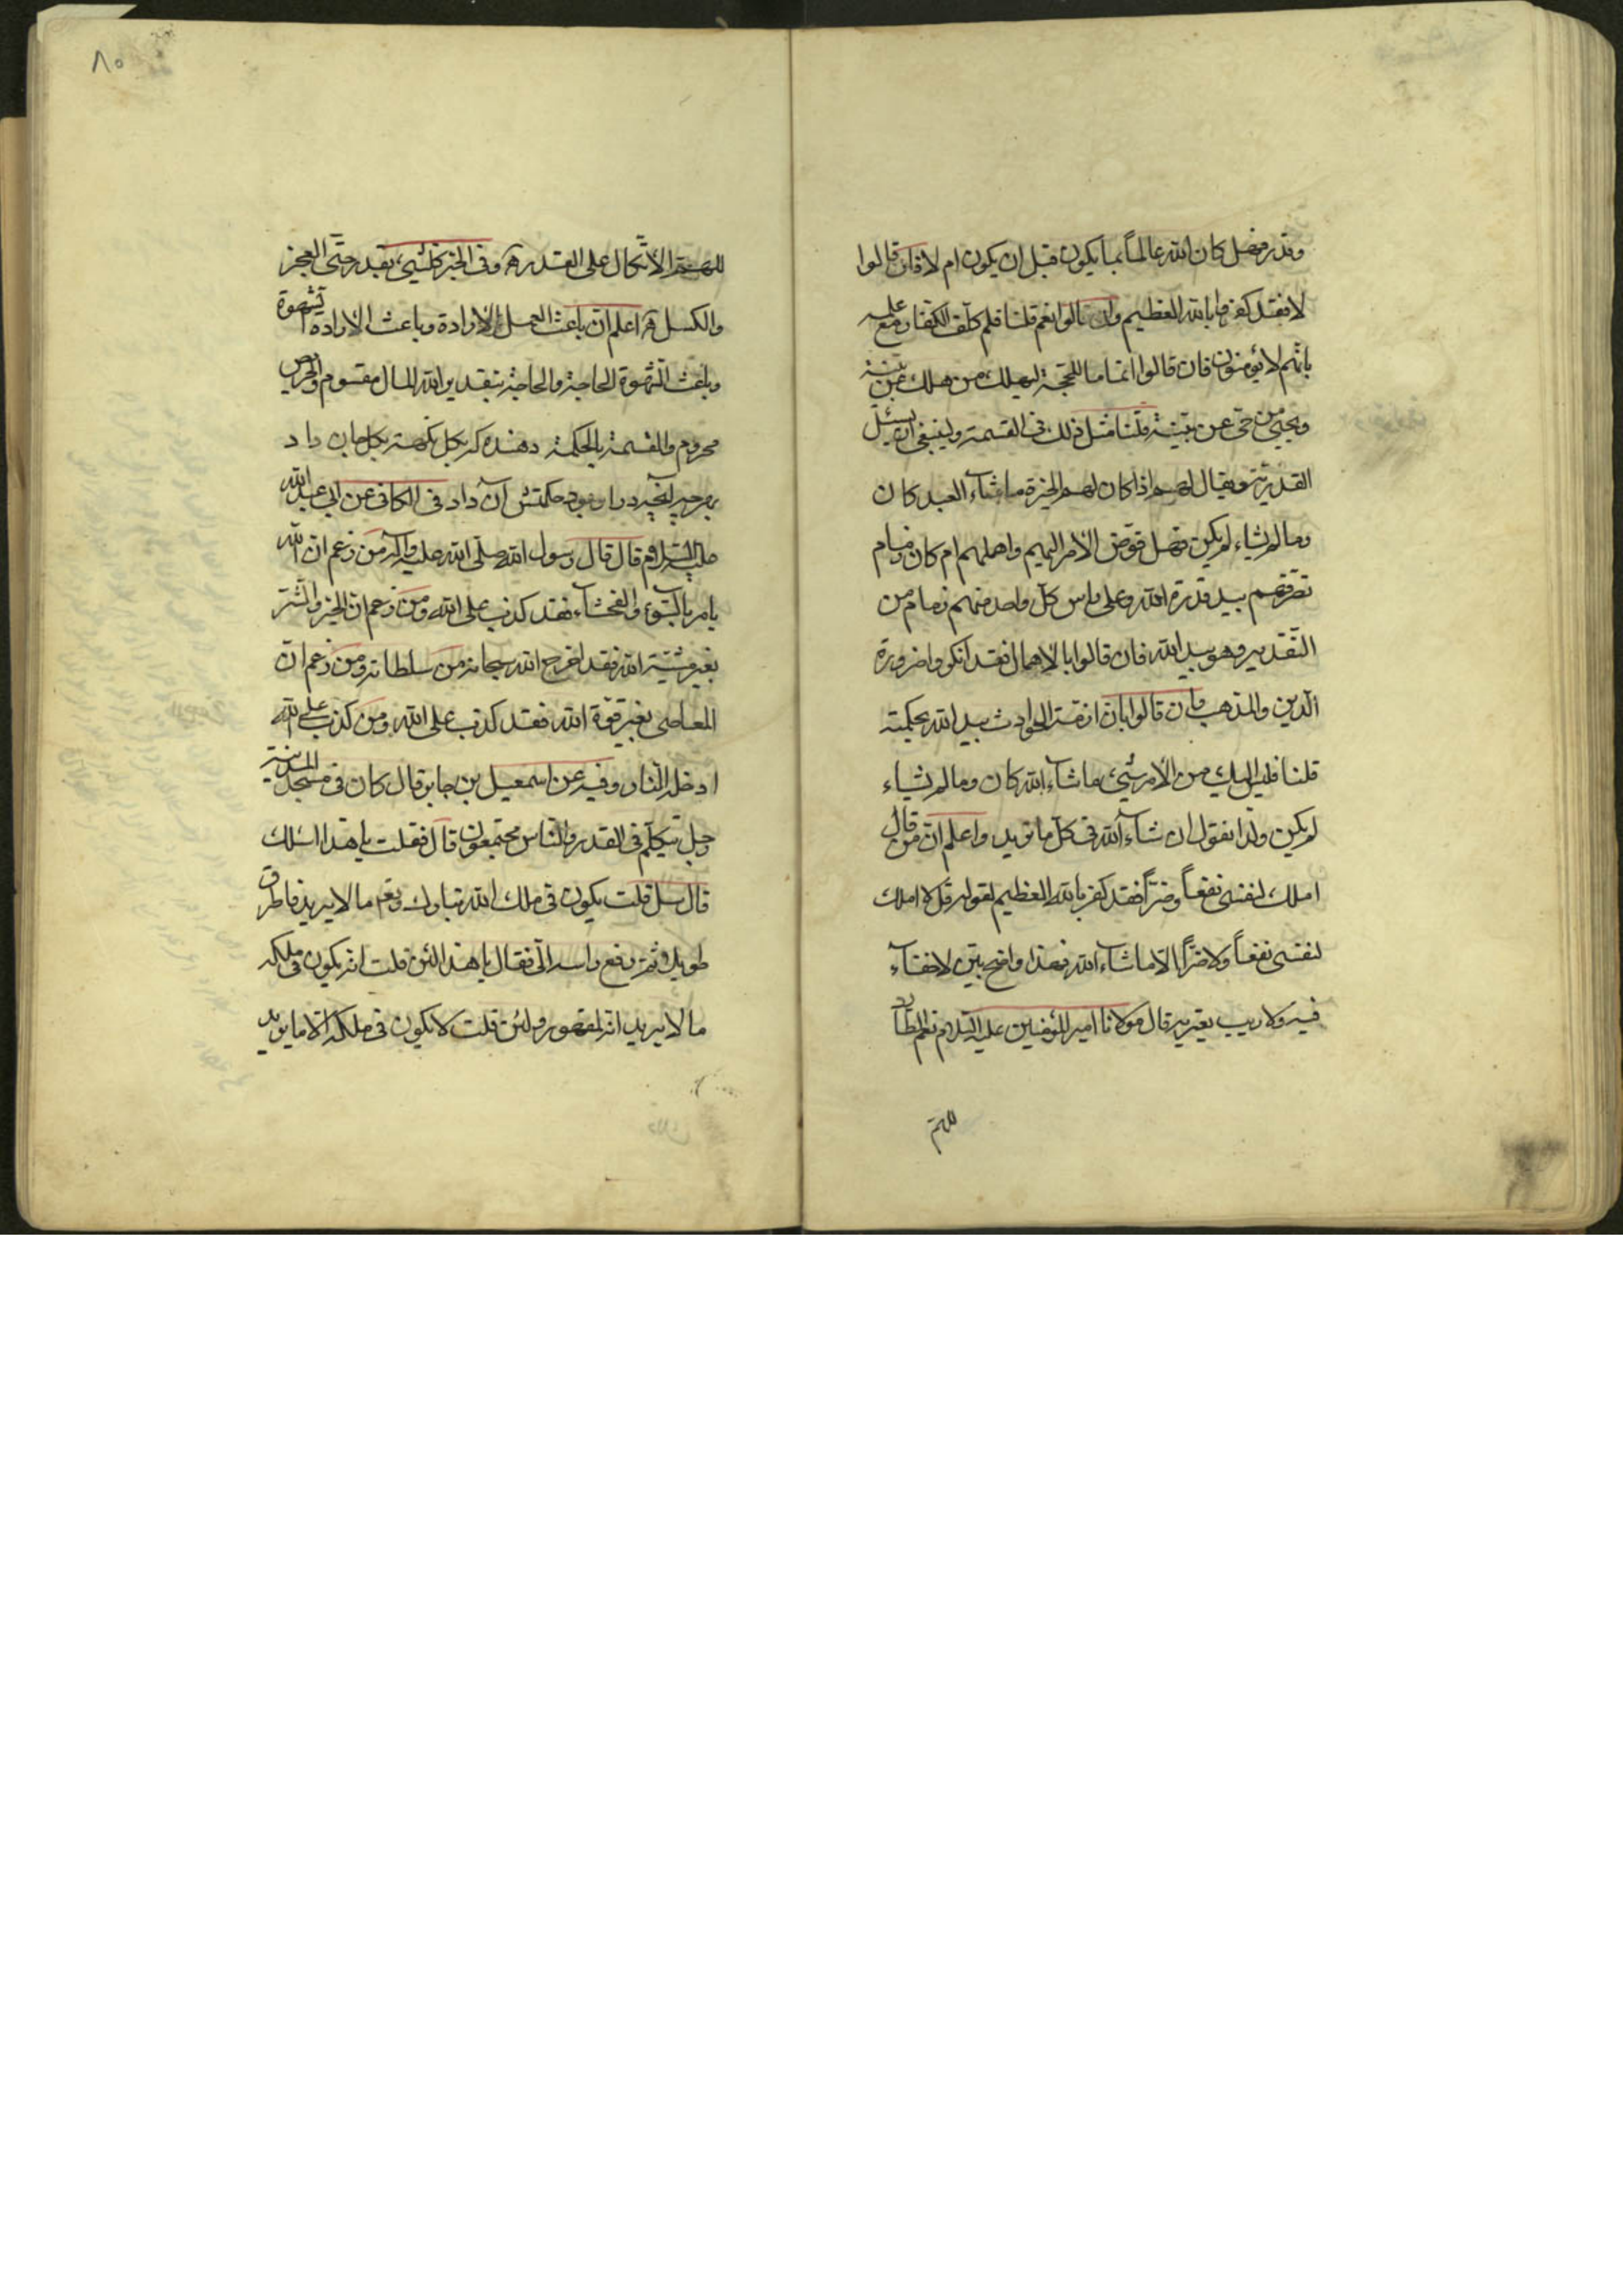 وقدر فهل كان الله عالماً بما يكون قبل ان يكون ام لا فان قالوا
لا فقد كفروا بالله العظيم وان قالوا نعم قلنا فلم كلف الكفار مع علمه
بانهم لا يؤمنون فان قالوا اتماما للحجة ليهلك من هلك عن بينة
ويحيى من حى عن بينة قلنا مثل ذلك فى القسمة ولينبغى ان يسئل
القدرية ويقال لهم اذا كان لهم الخيرة ما شاء العبد كان
وما لم يشاء لم يكن فهل فوض الأمر اليهم واهملهم ام كان زمام
تصرفهم بيد قدرة الله وعلى راس كل واحد منهم زمام من
التقدير وهو بيد الله فان قالوا بالاهمال فقد انكروا ضرورة
الدين والمذهب وان قالوا بان ازمة الحوادث بيد الله بحكمته
قلنا فليس اليك من الأمر شىء ما شاء الله كان وما لم يشاء
لم يكن ولذا نقول ان شاء الله فى كل ما نريد واعلم ان من قال
املك لنفسى نفعاً وضراً فقد كفر بالله العظيم لقوله قل لا املك
لنفسى نفعاً ولا ضراً الا ما شاء الله فهذا واضح بين لا خفاء
فيه ولا ريب يعتريه قال مولانا امير المؤمنين عليه السلام نعم الطارد
للهم
٨٥
للهم الاتكال على القدر وفى الخبر كل شىء بقدر حتى العجز
والكسل اعلم ان باعث العمل الارادة وباعث الارادة الشهوة
وباعث الشهوة الحاجة والحاجة بتقدير الله المال مقسوم والحريص
محروم والقسمة بالحكمة دهنده كه بكل نكهت بكل جان داد
بهر چيز آنچه سزا بود حكمتش آن داد فى الكافى عن ابى عبد الله
عليه السلام قال قال رسول الله صلى الله عليه وآله من زعم ان الله
يامر بالسوء والفحشاء فقد كذب على الله ومن زعم ان الخير والشر
بغير مشية الله فقد اخرج الله سبحانه من سلطانه ومن زعم ان
المعاصى بغير قوة الله فقد كذب على الله ومن كذب على الله
ادخله النار وفيه عن اسمعيل بن جابر قال كان فى مسجد المدينة
رجل يتكلم فى القدر والناس مجتمعون قال فقلت يا هذا اسئلك
قال سل قلت يكون فى ملك الله تبارك وتعالى ما لا يريد فاطرق
طويلا ثم رفع راسه الى فقال يا هذا لئن قلت انه يكون فى ملكه
ما لا يريد انه لمقهور ولئن قلت لا يكون فى ملكه الا ما يريد